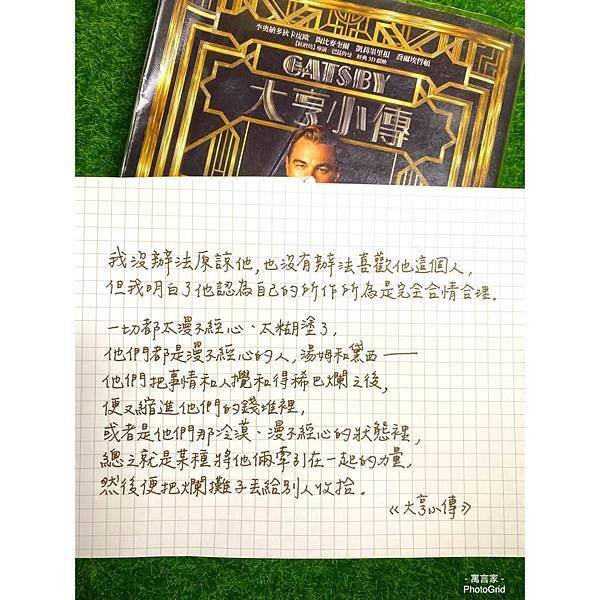 李奧納多狄卡皮歐 陶比麥奎爾 凱莉墨里根 喬爾埃哲頓
GATSBY
大亨小傳
我沒辦法原諒他,也沒有辦法喜歡他這個人,
但我明白了他認為自己的所作所為是完全合情合理。
一切都太漫不經心、太糊塗了,
他們都是漫不經心的人,湯姆和黛西——
他們把事情和人攪和得稀巴爛之後,
便又縮進他們的錢堆裡,
或者是他們那冷漠、漫不經心的狀態裡,
總之就是某種將他倆牽引在一起的力量,
然後便把爛攤子丟給別人收拾。
《大亨小傳》
- 寓言家 -
PhotoGrid